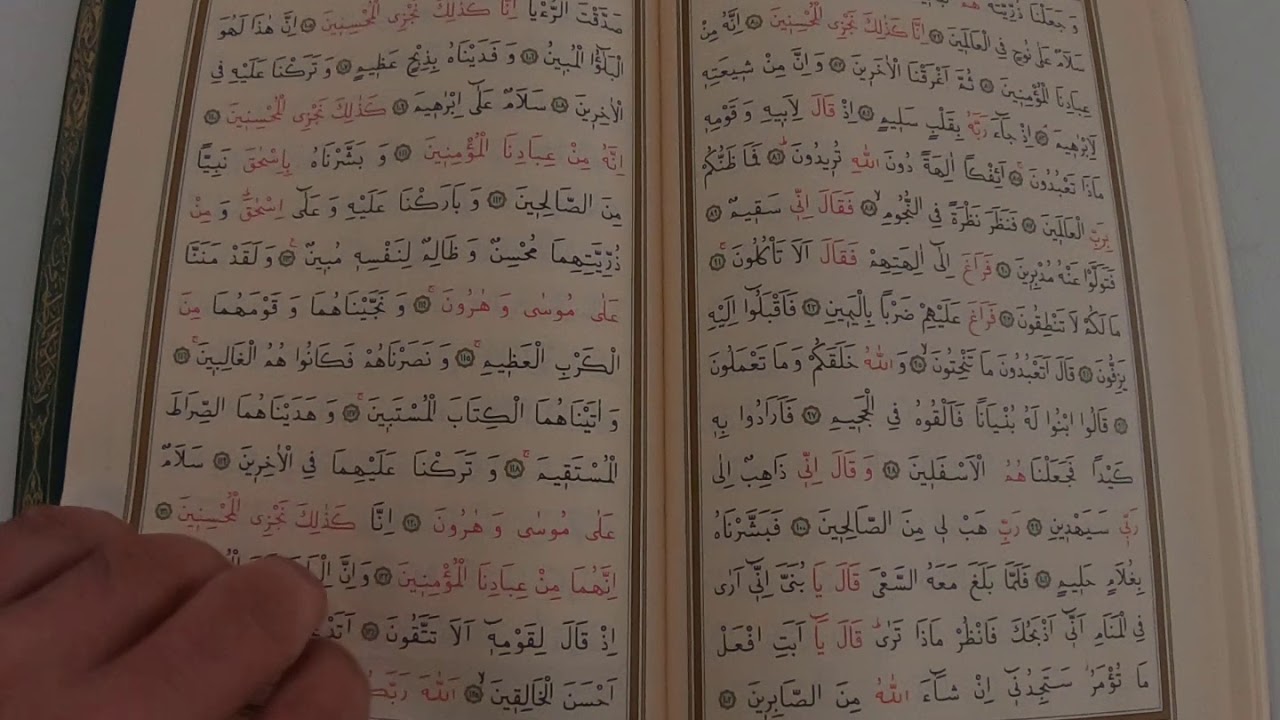 وَجَعَلْنَا ذُرِّيَّتَهُ هُمُ
سَلَامٌ عَلٰى نُوحٍ فِي الْعَالَمٖينَ ﴿٧٩﴾ اِنَّا كَذٰلِكَ نَجْزِي الْمُحْسِنٖينَ ﴿٨٠﴾ اِنَّهُ مِنْ
عِبَادِنَا الْمُؤْمِنٖينَ ﴿٨١﴾ ثُمَّ اَغْرَقْنَا الْاٰخَرٖينَ ﴿٨٢﴾ وَاِنَّ مِنْ شٖيعَتِهٖ
لَاِبْرٰهٖيمَ ﴿٨٣﴾ اِذْ جَٓاءَ رَبَّهُ بِقَلْبٍ سَلٖيمٍ ﴿٨٤﴾ اِذْ قَالَ لِاَبٖيهِ وَقَوْمِهٖ
مَاذَا تَعْبُدُونَ ﴿٨٥﴾ اَئِفْكًا اٰلِهَةً دُونَ اللّٰهِ تُرٖيدُونَ ﴿٨٦﴾ فَمَا ظَنُّكُمْ
بِرَبِّ الْعَالَمٖينَ ﴿٨٧﴾ فَنَظَرَ نَظْرَةً فِي النُّجُومِ ﴿٨٨﴾ فَقَالَ اِنّٖي سَقٖيمٌ ﴿٨٩﴾
فَتَوَلَّوْا عَنْهُ مُدْبِرٖينَ ﴿٩٠﴾ فَرَاغَ اِلٰٓى اٰلِهَتِهِمْ فَقَالَ اَلَا تَأْكُلُونَ ﴿٩١﴾
مَا لَكُمْ لَا تَنْطِقُونَ ﴿٩٢﴾ فَرَاغَ عَلَيْهِمْ ضَرْبًا بِالْيَمٖينِ ﴿٩٣﴾ فَاَقْبَلُٓوا اِلَيْهِ
يَزِفُّونَ ﴿٩٤﴾ قَالَ اَتَعْبُدُونَ مَا تَنْحِتُونَ ﴿٩٥﴾ وَاللّٰهُ خَلَقَكُمْ وَمَا تَعْمَلُونَ
﴿٩٦﴾ قَالُوا ابْنُوا لَهُ بُنْيَانًا فَاَلْقُوهُ فِي الْجَحٖيمِ ﴿٩٧﴾ فَاَرَادُوا بِهٖ
كَيْدًا فَجَعَلْنَاهُمُ الْاَسْفَلٖينَ ﴿٩٨﴾ وَقَالَ اِنّٖي ذَاهِبٌ اِلٰى
رَبّٖي سَيَهْدٖينِ ﴿٩٩﴾ رَبِّ هَبْ لٖي مِنَ الصَّالِحٖينَ ﴿١٠٠﴾ فَبَشَّرْنَاهُ
بِغُلَامٍ حَلٖيمٍ ﴿١٠١﴾ فَلَمَّا بَلَغَ مَعَهُ السَّعْيَ قَالَ يَا بُنَيَّ اِنّٖٓي اَرٰى
فِي الْمَنَامِ اَنّٖٓي اَذْبَحُكَ فَانْظُرْ مَاذَا تَرٰى قَالَ يَٓا اَبَتِ افْعَلْ
مَا تُؤْمَرُ سَتَجِدُنٖٓي اِنْ شَٓاءَ اللّٰهُ مِنَ الصَّابِرٖينَ ﴿١٠٢﴾
صَدَّقْتَ الرُّءْيَا اِنَّا كَذٰلِكَ نَجْزِي الْمُحْسِنٖينَ ﴿١٠٥﴾ اِنَّ هٰذَا لَهُوَ
الْبَلٰٓؤُا الْمُبٖينُ ﴿١٠٦﴾ وَفَدَيْنَاهُ بِذِبْحٍ عَظٖيمٍ ﴿١٠٧﴾ وَتَرَكْنَا عَلَيْهِ فِي
الْاٰخِرٖينَ ﴿١٠٨﴾ سَلَامٌ عَلٰٓى اِبْرٰهٖيمَ ﴿١٠٩﴾ كَذٰلِكَ نَجْزِي الْمُحْسِنٖينَ ﴿١١٠﴾
اِنَّهُ مِنْ عِبَادِنَا الْمُؤْمِنٖينَ ﴿١١١﴾ وَبَشَّرْنَاهُ بِاِسْحٰقَ نَبِيًّا
مِنَ الصَّالِحٖينَ ﴿١١٢﴾ وَبَارَكْنَا عَلَيْهِ وَعَلٰٓى اِسْحٰقَ وَمِنْ
ذُرِّيَّتِهِمَا مُحْسِنٌ وَظَالِمٌ لِنَفْسِهٖ مُبٖينٌ ﴿١١٣﴾ وَلَقَدْ مَنَنَّا
عَلٰى مُوسٰى وَهٰرُونَ ﴿١١٤﴾ وَنَجَّيْنَاهُمَا وَقَوْمَهُمَا مِنَ
الْكَرْبِ الْعَظٖيمِ ﴿١١٥﴾ وَنَصَرْنَاهُمْ فَكَانُوا هُمُ الْغَالِبٖينَ ﴿١١٦﴾
وَاٰتَيْنَاهُمَا الْكِتَابَ الْمُسْتَبٖينَ ﴿١١٧﴾ وَهَدَيْنَاهُمَا الصِّرَاطَ
الْمُسْتَقٖيمَ ﴿١١٨﴾ وَتَرَكْنَا عَلَيْهِمَا فِي الْاٰخِرٖينَ ﴿١١٩﴾ سَلَامٌ
عَلٰى مُوسٰى وَهٰرُونَ ﴿١٢٠﴾ اِنَّا كَذٰلِكَ نَجْزِي الْمُحْسِنٖينَ ﴿١٢١﴾
اِنَّهُمَا مِنْ عِبَادِنَا الْمُؤْمِنٖينَ ﴿١٢٢﴾ وَاِنَّ
اِذْ قَالَ لِقَوْمِهٖٓ اَلَا تَتَّقُونَ ﴿١٢٤﴾
اَحْسَنَ الْخَالِقٖينَ ﴿١٢٥﴾ اَللّٰهَ